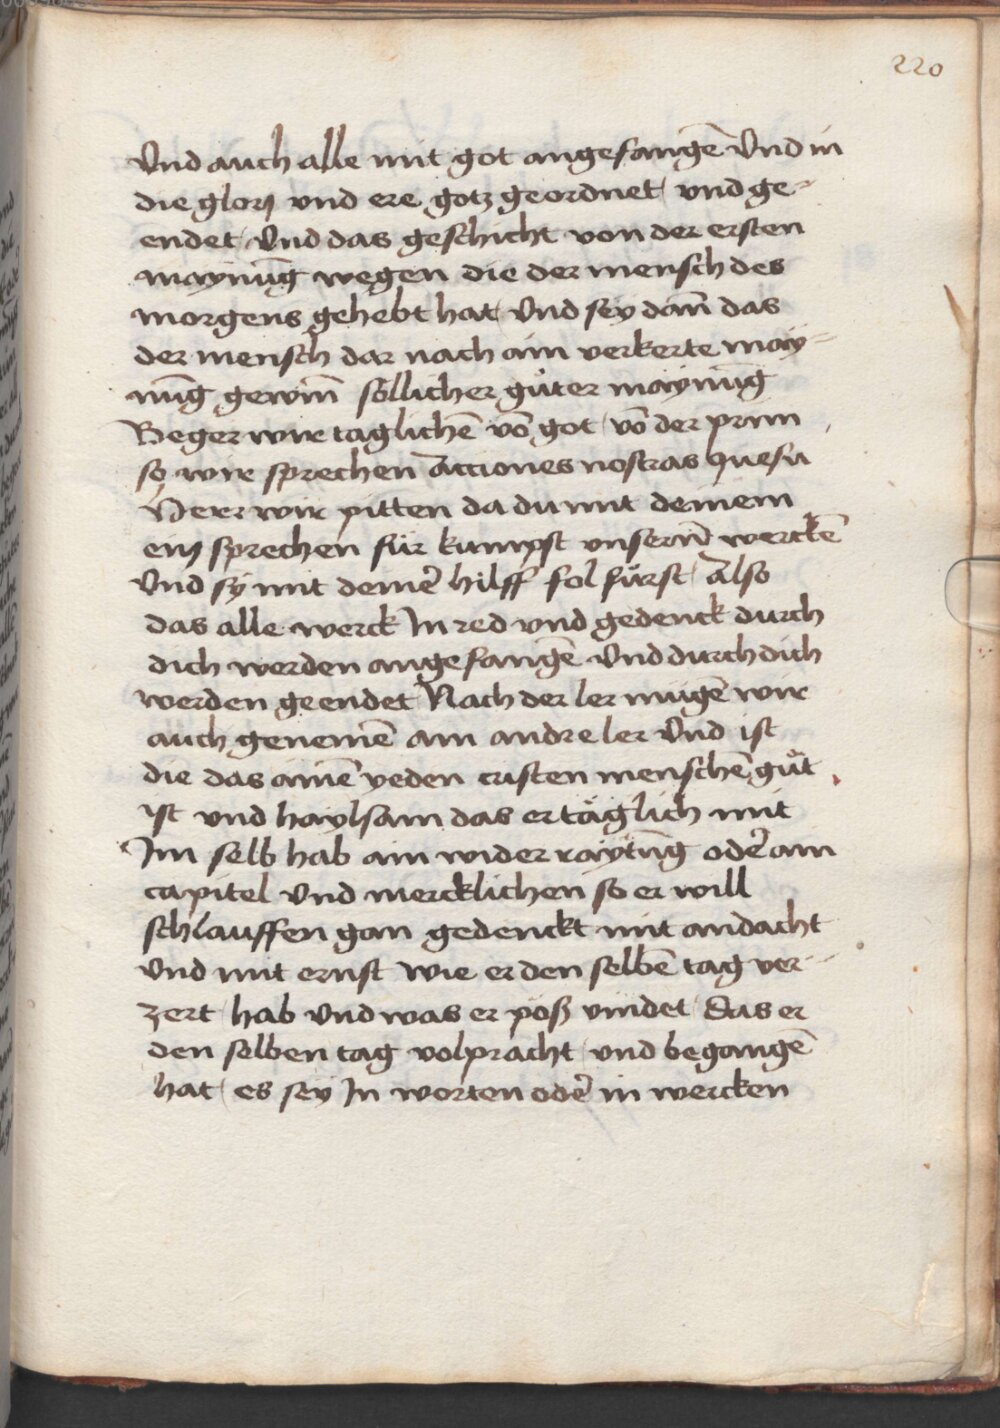 220
Vnd auch alle mit got angefangē Vnd in
die glorj vnd ere gotz geordnet vnd ge-
endet Vnd das geschicht von der ersten
maynūg wegen die der mensch des
morgens gehebt hat Vnd sey dan̄ das
der mensch dar nach ain verkerte may-
nūg gewin̄ sollicher gůter maynūg
Beger wir taglichē vō got vō der prim
so wir sprechen Acciones nostras quesu
Herr wir pitten da du mit deinem
ein sprechen für kumpst vnsern̄ werckē
Vnd sy mit deinē hilff fol fürst Also
das alle werck In red vnd gedenck durch
dich werden angefangē Vnd durch dich
werden geendet Nach der ler mügē wir
auch genemē ain andre ler Vnd ist
die das ainē yeden cristen menschē gůt
ist vnd haylsam das er täglich mit
Im selb hab ain wider raytūg odē ain
capitel Vnd mercklichen so er will
schlauffen gan gedenckt mit andacht
Vnd mit ernst wie er den selbē tag ver-
zert hab Vnd was er poß vindet das er
den selben tag volpracht vnd begangē
hat es sey In worten odē in wercken